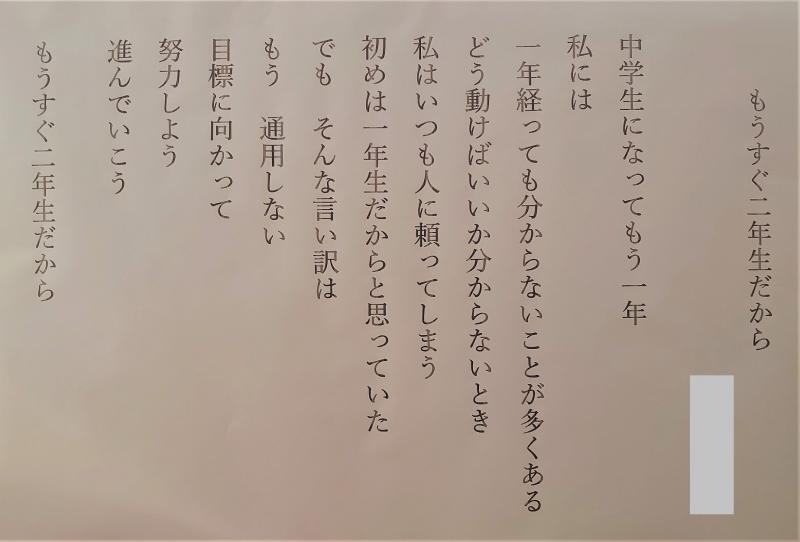 もうすぐ二年生だから
中学生になってもう一年
私には
一年経っても分からないことが多くある
どう動けばいいか分からないとき
私はいつも人に頼ってしまう
初めは一年生だからと思っていた
でも　そんな言い訳は
もう　通用しない
目標に向かって
努力しよう
進んでいこう
もうすぐ二年生だから